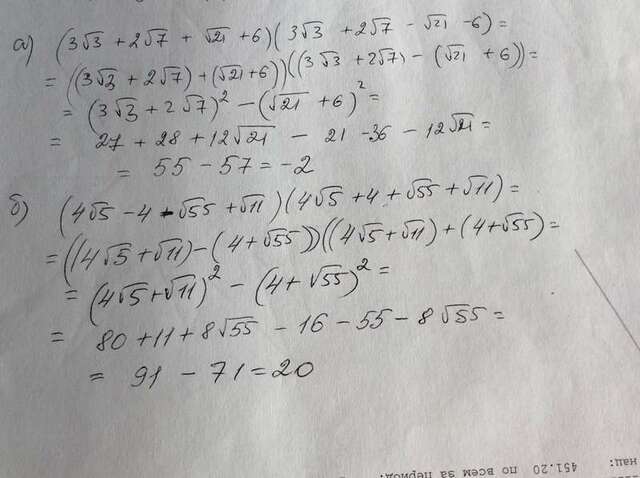 а) (3√3 + 2√7 + √21 + 6)(3√3 + 2√7 - √21 - 6) =
= ((3√3 + 2√7) + (√21 + 6))((3√3 + 2√7) - (√21 + 6)) =
= (3√3 + 2√7)² - (√21 + 6)² =
= 27 + 28 + 12√21 - 21 - 36 - 12√21 =
= 55 - 57 = -2
б) (4√5 - 4 - √55 + √11)(4√5 + 4 + √55 + √11) =
= ((4√5 + √11) - (4 + √55))((4√5 + √11) + (4 + √55) =
= (4√5 + √11)² - (4 + √55)² =
= 80 + 11 + 8√55 - 16 - 55 - 8√55 =
= 91 - 71 = 20
нац: 451.20 по всем за период: